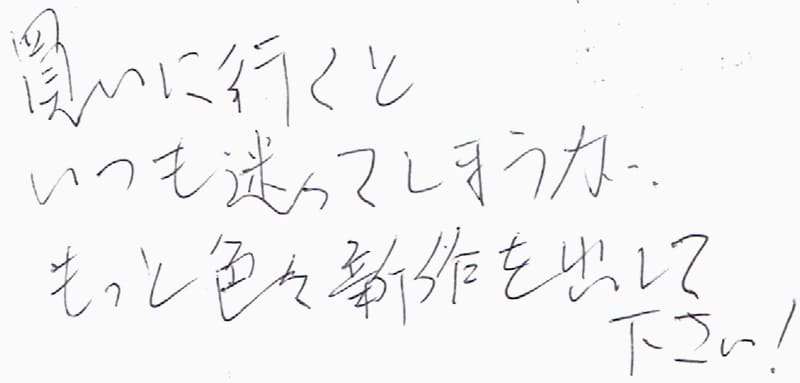 買いに行くと
いつも迷ってしまうが、
もっと色々新作を出して
下さい!